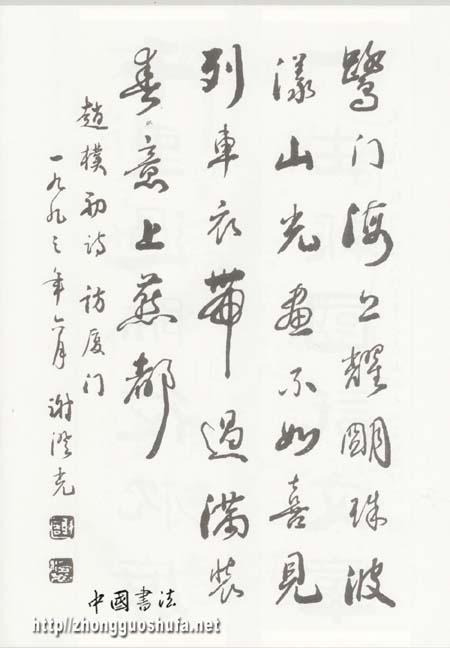 鹭门海上耀明珠波
漾山光画不如喜见
列車衣带過满装
春意上燕都
趙樸初诗訪厦门
一九九三年六月谢澄光
中國書法
http://zhongguoshufa.net